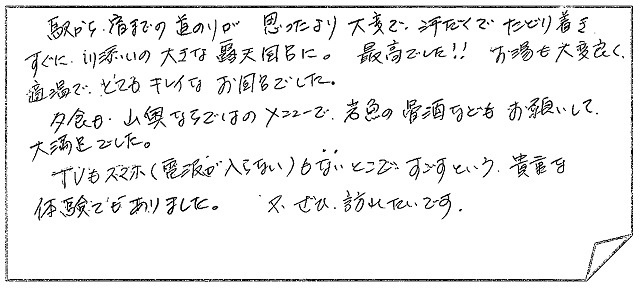 駅から宿までの道のりが 思ったより大変で、汗だくでたどり着き
すぐに、川添いの大きな露天風呂に。 最高でした!! お湯も大変良く、
適温で、とてもキレイなお風呂でした。
夕食も、山奥ならではのメニューで、岩魚の骨酒などもお願いして、
大満足でした。
TVもスマホ(電波が入らない)もないとこで、すごすという、貴重な
体験でもありました。 又、ぜひ、訪れたいです。